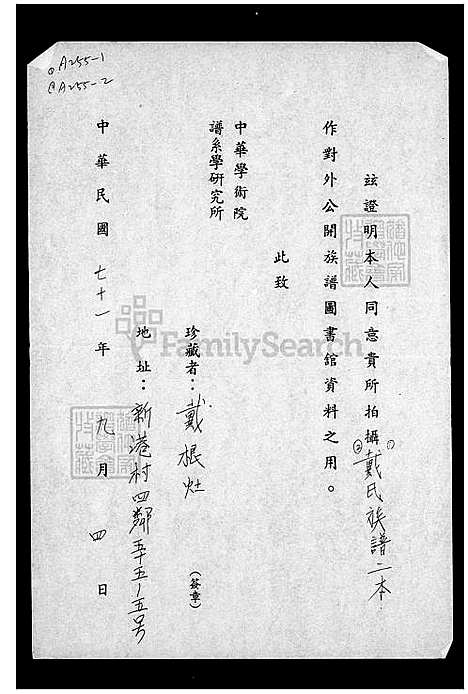 A255-1
@A255-2
茲證明本人同意貴所拍攝①②戴氏族譜二本
作對外公開族譜圖書館資料之用。
此致
中華學術院
譜系學研究所
珍藏者：戴根灶（簽章）
地址：新港村四鄰五十五-五号
中華民國七十一年九月四日
FamilySearch